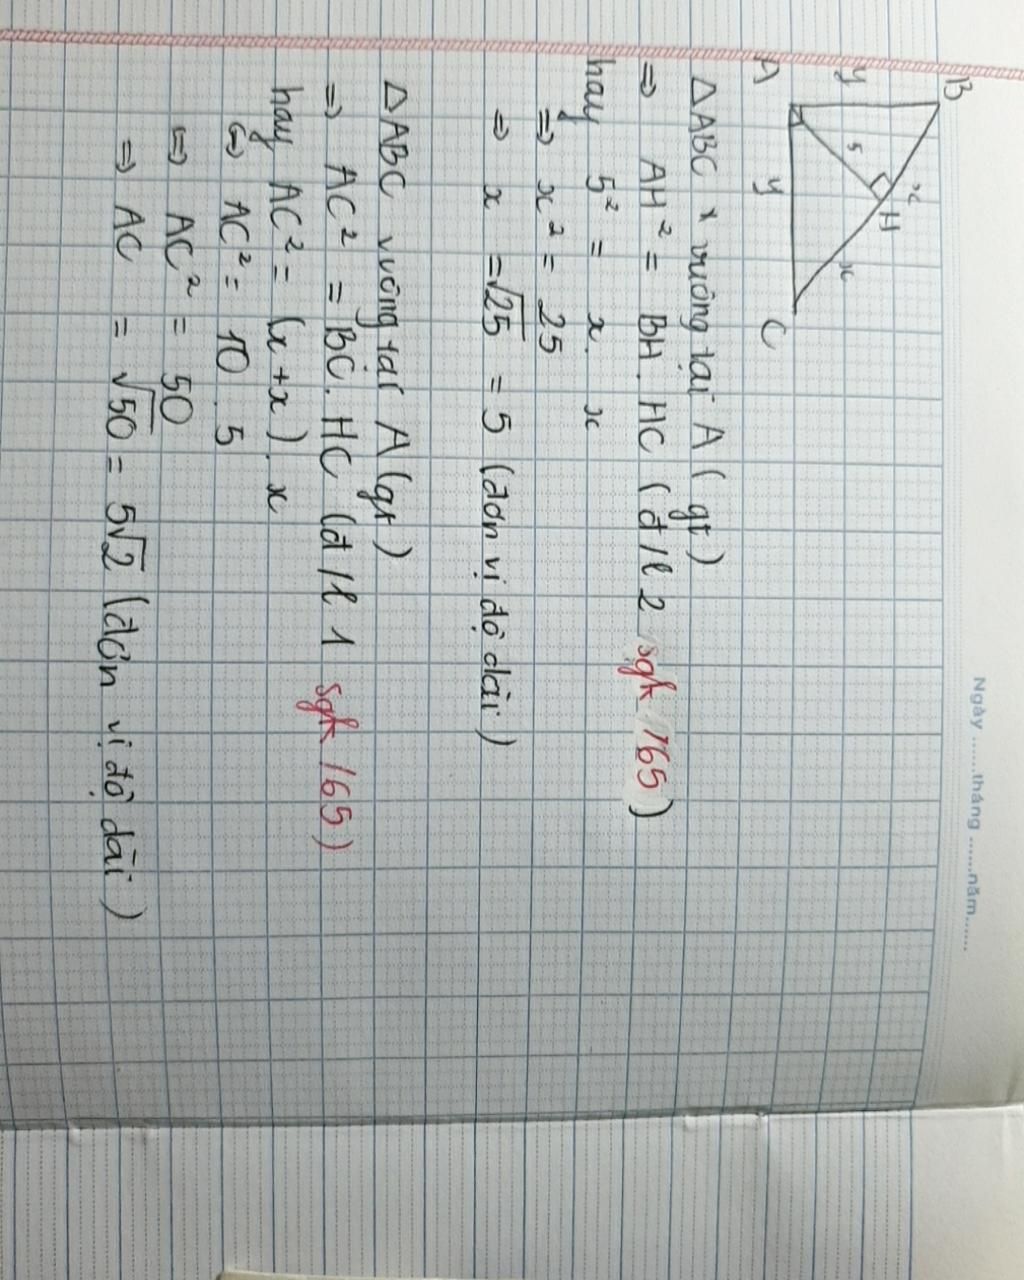 Ngày ......tháng ......năm......
B
x
y
H
5
x
y
A
C
ΔABC vuông tại A (gt)
⇒ AH² = BH. HC (đ/l 2 sgk /165)
hay 5² = x. x
⇒ x² = 25
⇒ x = √25 = 5 (đơn vị độ dài)
ΔABC vuông tại A (gt)
⇒ AC² = BC. HC (đ/l 1 sgk /65)
hay AC² = (x+x). x
⇔ AC² = 10 . 5
⇒ AC² = 50
⇒ AC = √50 = 5√2 (đơn vị độ dài)